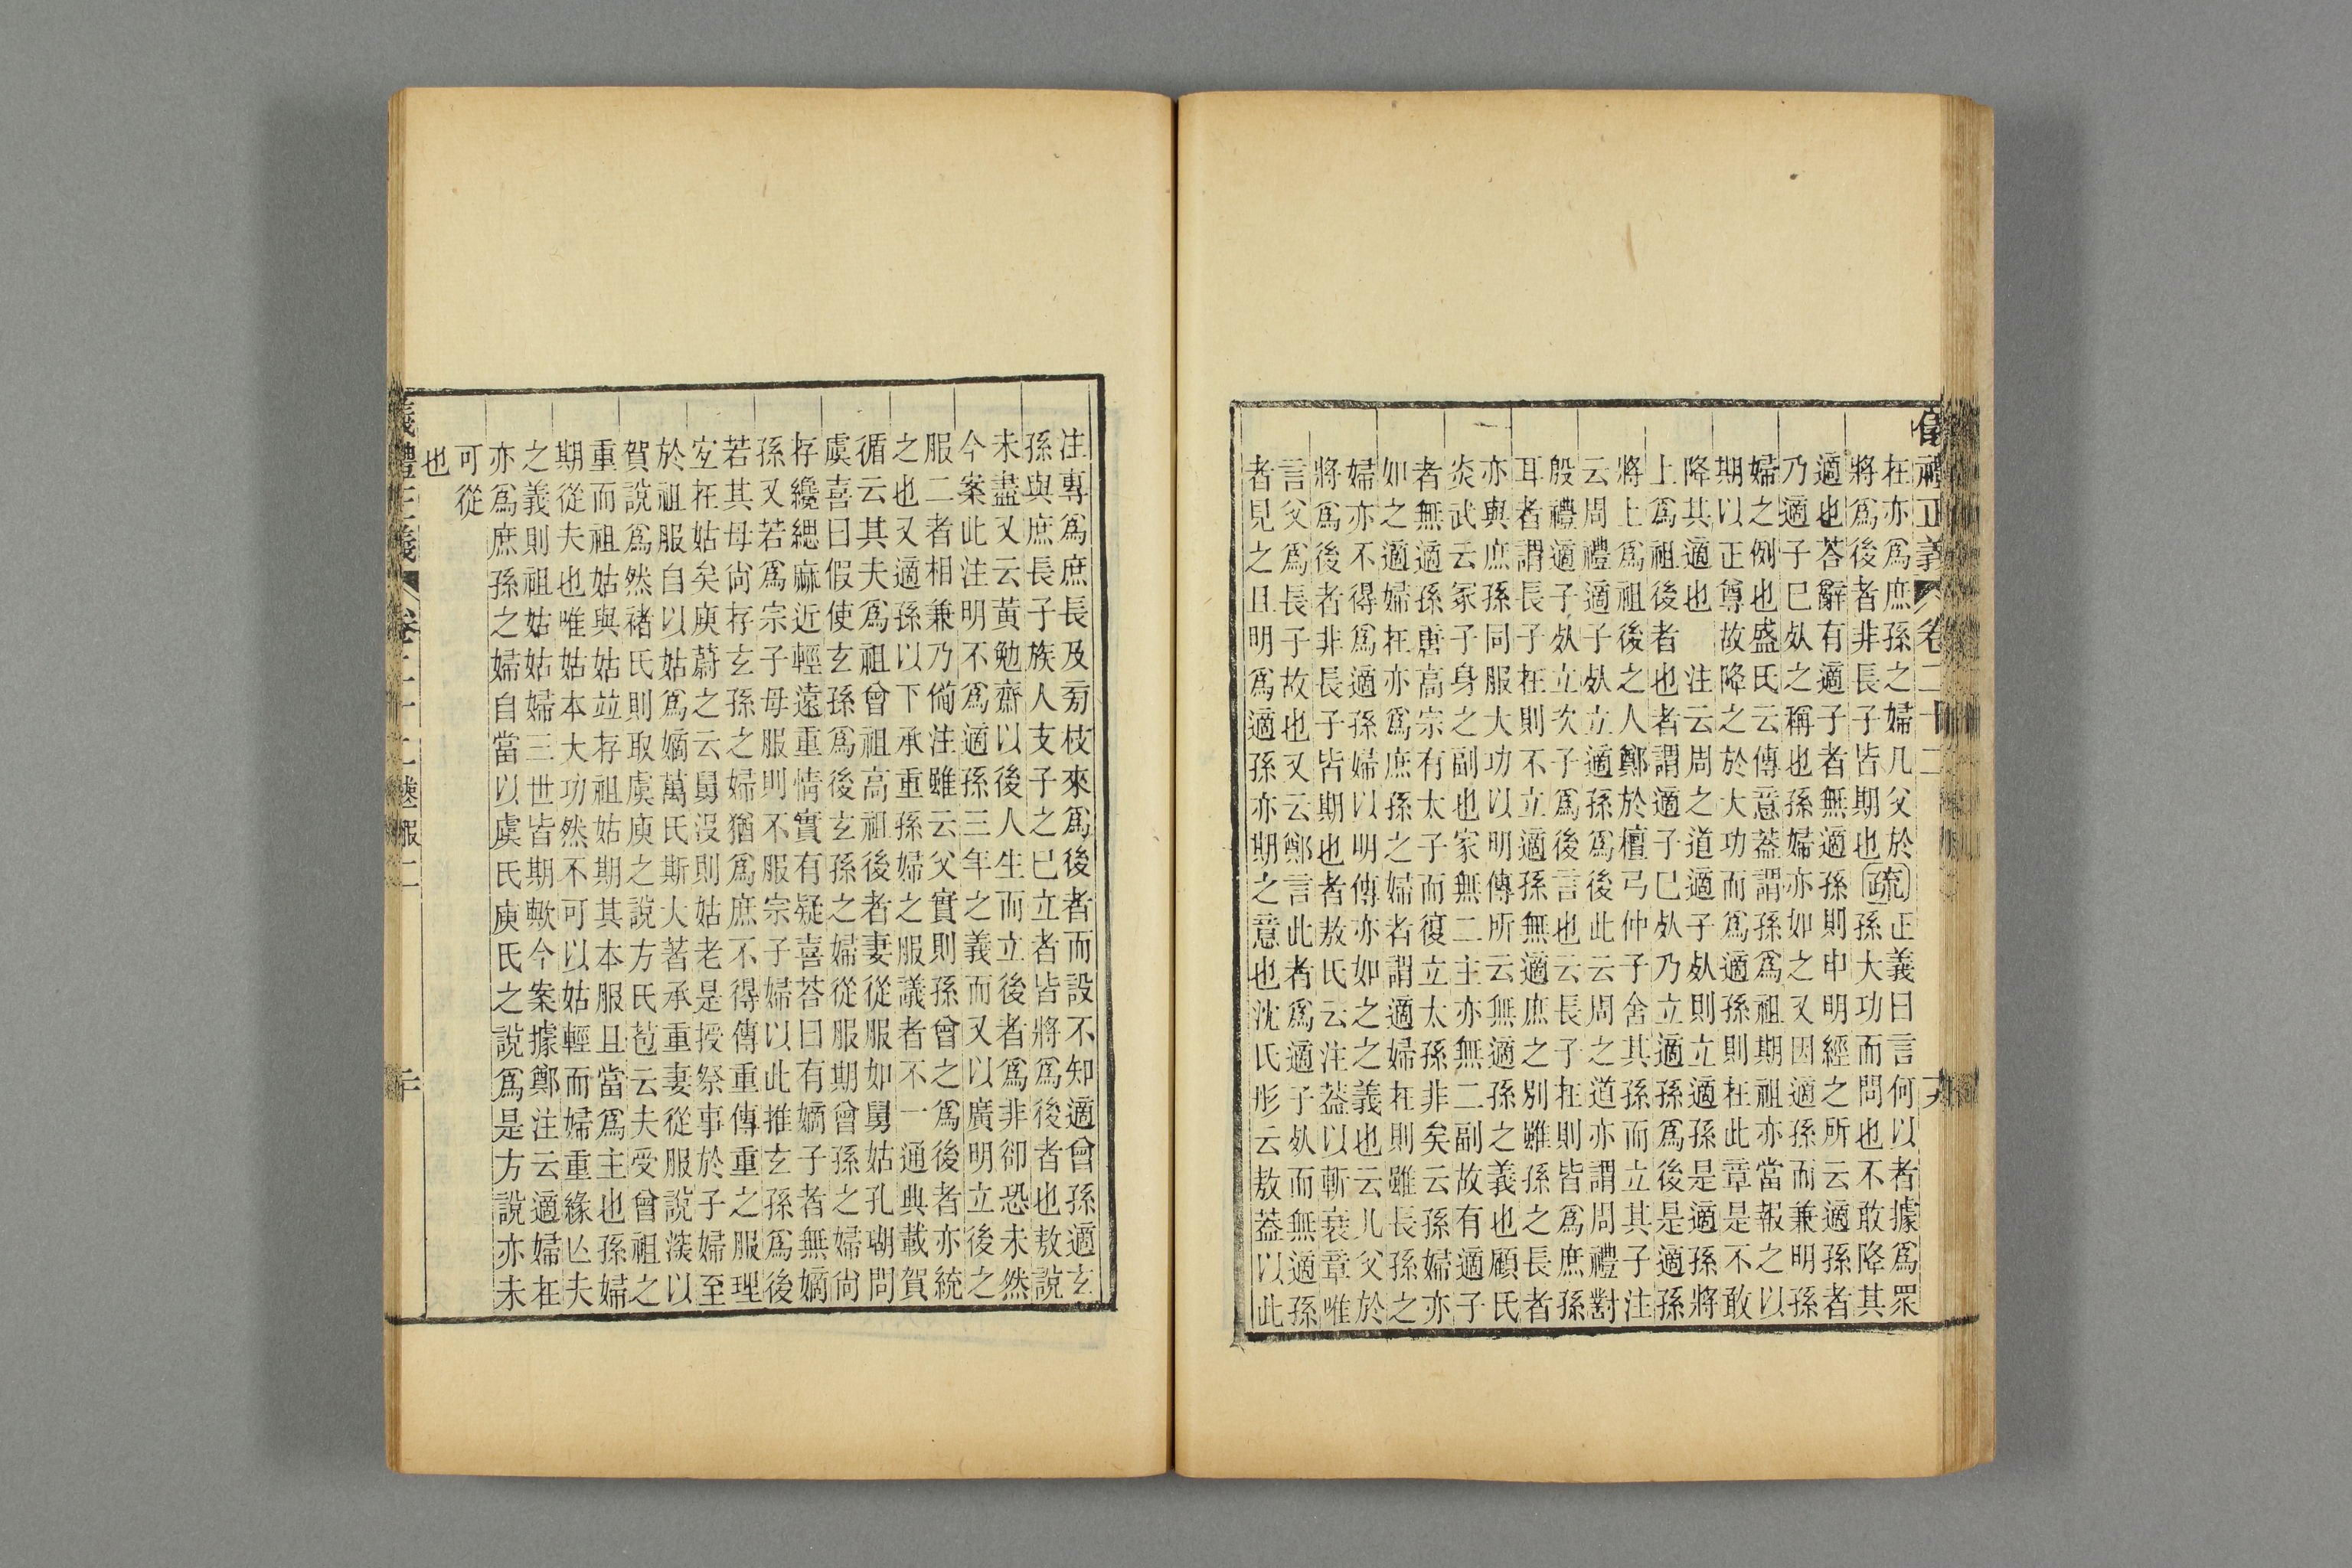 儀禮正義 卷二十二
在亦爲庶孫之婦凡父於
將爲後者非長子皆期也
疏
正義曰言何以者據爲眾
孫大功而問也不敢降其
適也荅辭有適子者無適孫則申明經之所云適孫者
乃適子已死之稱也孫婦亦如之又因適孫而兼明孫
婦之例也盛氏云傳意蓋謂孫爲祖期祖亦當報之以
期以正尊故降之於大功而爲適孫則在此章是不敢
降其適也 注云周之道適子死則立適孫是適孫將
上爲祖後者也者謂適子已死乃立適孫爲後是適孫
將上爲祖後之人鄭於檀弓仲子舍其孫而立其子注
云周禮適子死立適孫爲後此云周之道亦謂周禮對
殷禮適子死立次子爲後言也云長子在則皆爲庶孫
耳者謂長子在則不立適孫無適庶之別雖孫之長者
亦與庶孫同服大功以明傳所云無適孫之義也顧氏
炎武云冢子身之副也家無二主亦無二副故有適子
者無適孫唐高宗有太子而復立太孫非矣云孫婦亦
如之適婦在亦爲庶孫之婦者謂適婦在則雖長孫之
婦亦不得爲適孫婦以明傳亦如之之義也云凡父於
將爲後者非長子皆期也者敖氏云注蓋以斬衰章唯
言父爲長子故也又云鄭言此者爲適子死而無適孫
者見之且明爲適孫亦期之意也沈氏彤云敖蓋以此
注專爲庶長及旁枝來爲後者而設不知適曾孫適玄
孫與庶長子族人支子之已立者皆將爲後者也敖說
未盡又云黃勉齋以後人生而立後者爲非卻恐未然
今案此注明不爲適孫三年之義而又以廣明立後之
服二者相兼乃備注雖云父實則孫曾之爲後者亦統
之也又適孫以下承重孫婦之服議者不一通典載賀
循云其夫爲祖曾祖高祖後者妻從服如舅姑孔瑚問
虞喜曰假使玄孫爲後玄孫之婦從服期曾孫之婦尚
存纔緦麻近輕遠重情實有疑喜荅曰有嫡子者無嫡
孫又若爲宗子母服則不服宗子婦以此推玄孫爲後
若其母尚存玄孫之婦猶爲庶不得傳重傳重之服理
宜在姑矣庾蔚之云舅沒則姑老是授祭事於子婦至
於祖服自以姑爲嫡萬氏斯大著承重妻從服說淡以
賀說爲然褚氏則取虞庾之說方氏苞云夫受曾祖之
重而祖姑與姑竝存祖姑期其本服且當爲主也孫婦
期從夫也唯姑本大功然不可以姑輕而婦重緣亾夫
之義則祖姑姑婦三世皆期歟今案據鄭注云適婦在
亦爲庶孫之婦自當以虞氏庾氏之說爲是方說亦未
可從
也
儀禮正義 卷二十二 喪服二